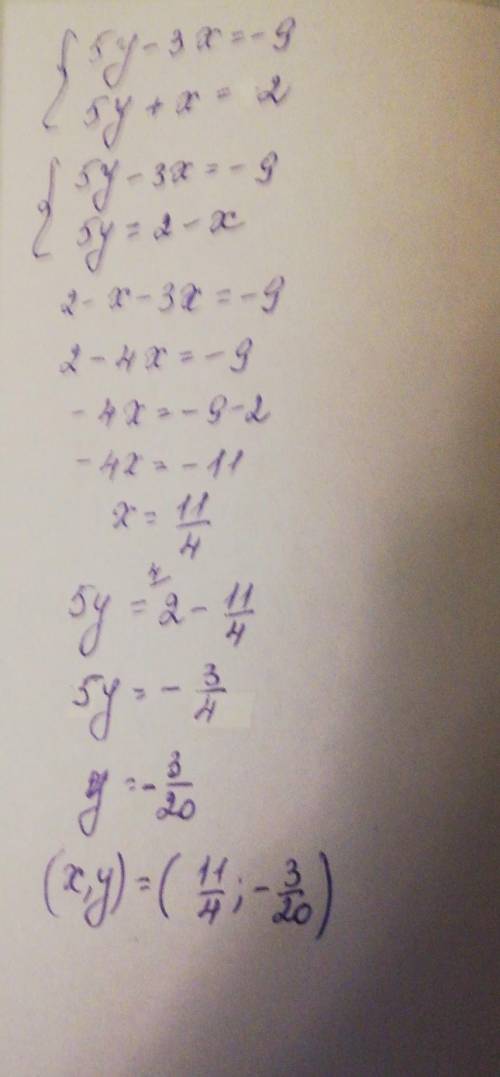 { 5y - 3x = -9
5y + x = 2
{ 5y - 3x = -9
5y = 2 - x
2 - x - 3x = -9
2 - 4x = -9
-4x = -9 - 2
-4x = -11
x = 11/4
5y = 2 - 11/4
5y = - 3/4
y = - 3/20
(x, y) = ( 11/4 ; - 3/20 )